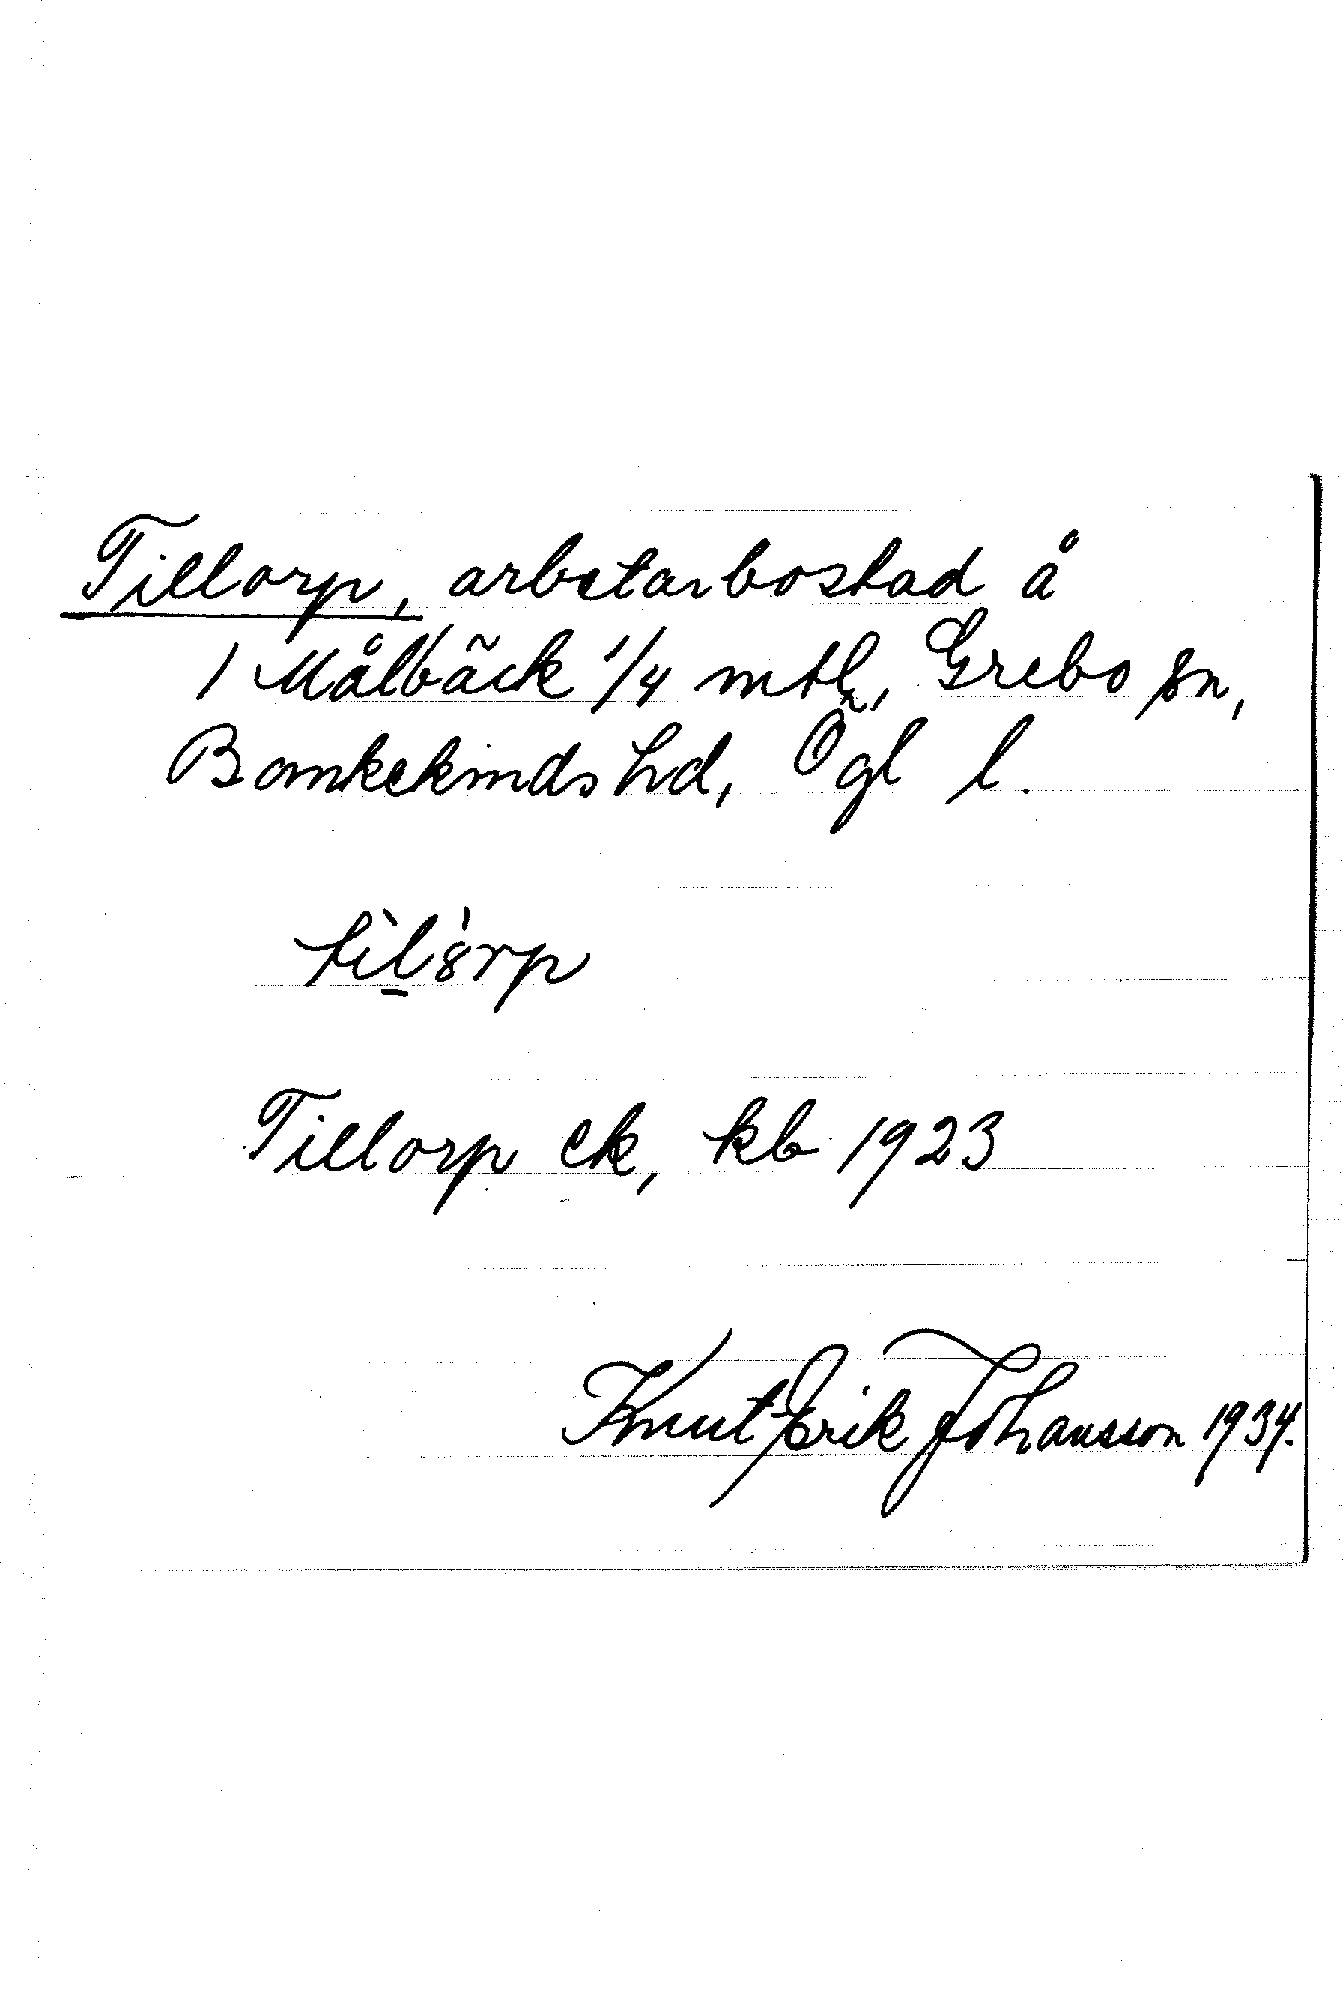 Tillorp, arbetarbostad å
1 Målbäck 1/4 mtl, Grebo sn,
Bankekinds hd, Ögl l.
tìl'òrp
Tillorp ek, kb 1923
Knut Erik Johansson 1934.